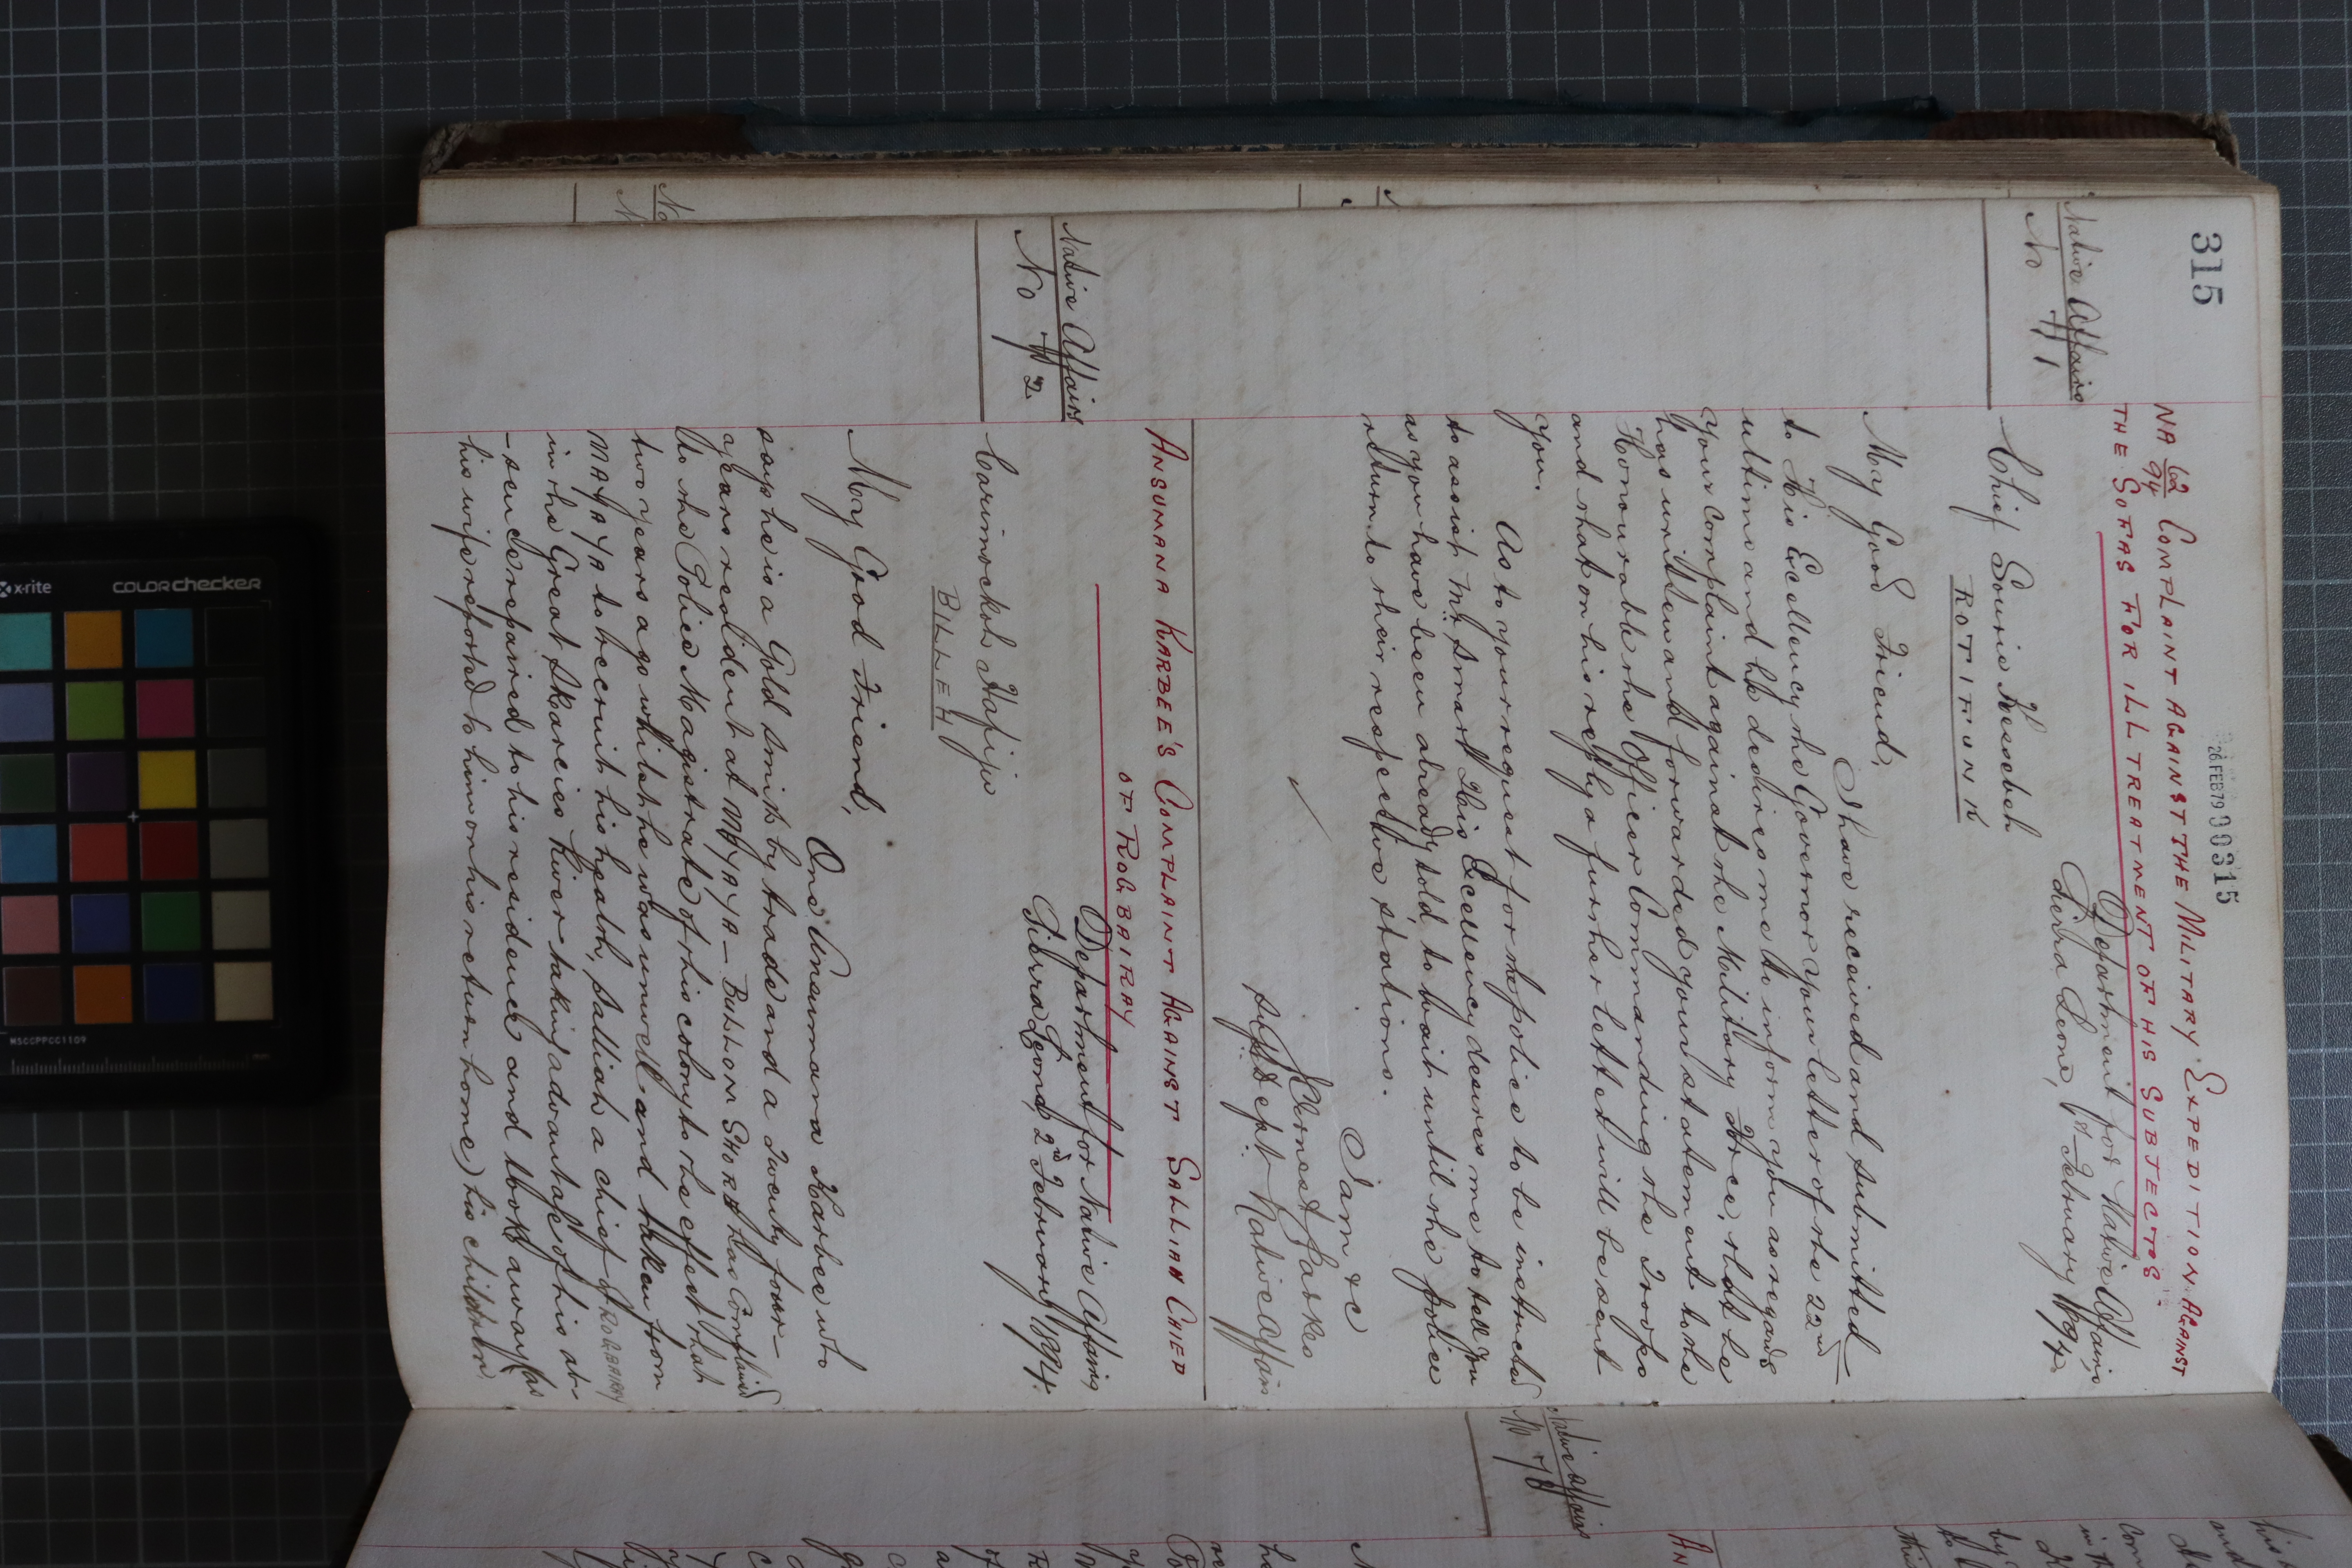 315
26 FEB 79 000315
NA 62/94 COMPLAINT AGAINST THE MILITARY EXPEDITION AGAINST
THE SOFAS FOR ILL TREATMENT OF HIS SUBJECTS.
Native Affairs
No 71
Department for Native Affairs,
Sierra Leone, 1st February 1894.
Chief Sourie
ROTIFUNK
My Good Friend,
I have received and submitted
to His Excellency the Governor your letter of the 22nd
ultimo and he desires me to inform you as regards
your complaint against the Military Force, that he
has written and forwarded your statement to the
Honourable the Officer Commanding the Troops
and that on his reply a further letter will be sent
you.
As to your request for the police to be instructed
to assist Mr. Smart His Excellency desires me to tell you
as you have been already told to wait until the police
return to their respective stations.
I am &c
J. Ernest Parkes
Supt Dept Native Affairs
ANSUMANA KARBEE'S COMPLAINT AGAINST SALLIAH CHIEF
OF ROBBAIRAY
Native Affairs
No 72
Department for Native Affairs
Sierra Leone, 2nd February 1894.
Carimockoh
BILLEH
My Good Friend,
One Ansumana Karbee who
says he is a Gold Smith by trade and a twenty four
years resident at MAYAYA - BULLOM SHORE has complained
to the Police Magistrate of this colony to the effect that
two years ago whilst he was unwell and taken from
MAYAYA to recruit his health, Salliah a chief of ROBBAIRAY
in the Great Skarcies River taking advantage of his ab-
-sence repaired to his residence and took away (as
his wife reported to him on his return home) his children
Native Affairs
No 73
AN